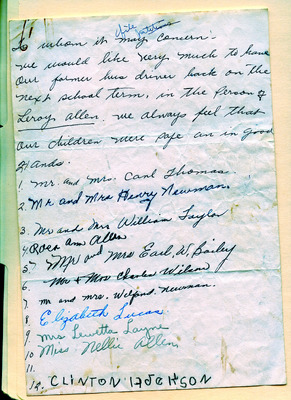 To whom it may concern:
we would like very much to have
our former bus driver back on the
next school term, in the person of
Leroy Allen. we always feel that
our children were safe an in good
Hands.
1. Mr. and Mrs. Carl Thomas.
2. Mr and Mrs Henry Newman
3. Mr and Mrs William Taylor
4. Rosa Ann Allen
5. Mr and Mrs Earl W. Bailey
6. Mr + Mrs Charles Wilson
7. Mr and mrs. Newman.
8 Elizabeth Lucas
9 Mrs Layne
10 Miss Nellie Allen
11.
12. CLINTON